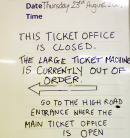 Date Thursday 23rd August
Time
THIS TICKET OFFICE
IS CLOSED.
THE LARGE TICKET MACHINE
IS CURRENTLY OUT OF
ORDER.
GO TO THE HIGH ROAD
ENTRANCE WHERE THE
MAIN TICKET OFFICE
IS OPEN